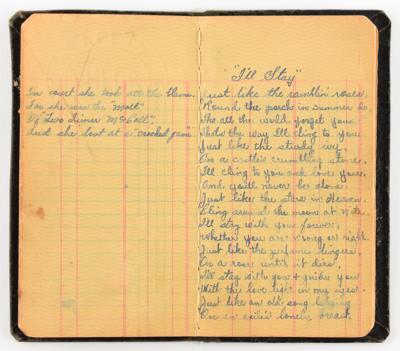 In court she took all the blame
For she was the "Moll"
Of "Two Timer McCall",
And she lost at a "crooked game".
"I'll Stay"
Just like the ramblin' roses,
'Round the porch in Summer do,
Tho all the world forget you,
That's the way I'll cling to you
Just like the sturdy ivy
On a crumbling stone,
I'll cling to you and love you
And you'll never be alone.
Just like the stars in Heaven,
Cling around the moon at nite.
I'll stay with you forever,
Whether you are wrong or right.
Just like the perfume lingers,
On a rose until it dies,
I'll stay with you & guide you
With the love light in my eyes.
Just like an old song
On an exile's lonely breast,